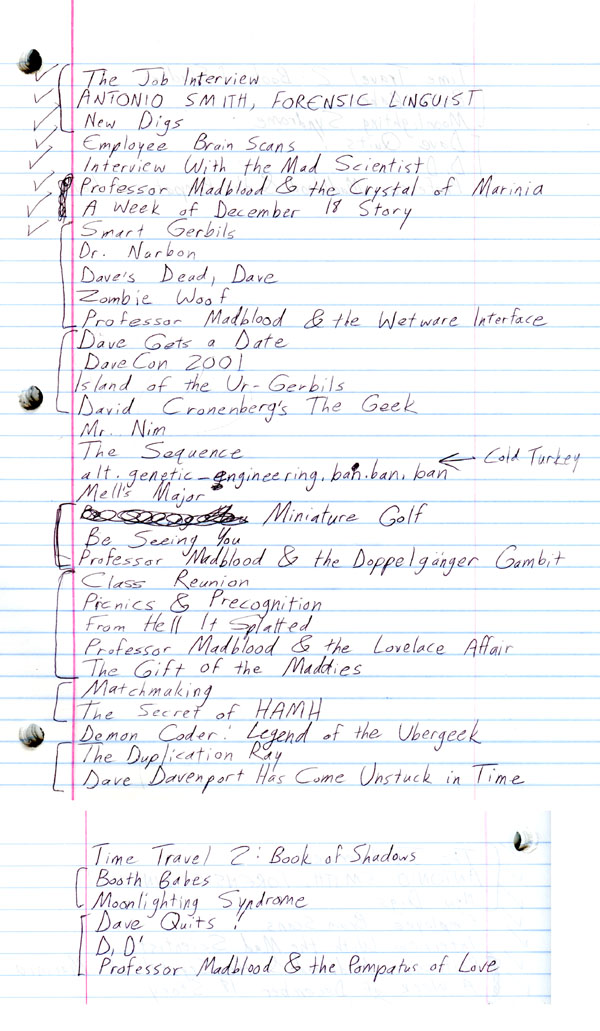 The Job Interview
ANTONIO SMITH, FORENSIC LINGUIST
New Digs
Employee Brain Scans
Interview With the Mad Scientist
Professor Madblood & the Crystal of Marinia
A Week of December 18 Story
Smart Gerbils
Dr. Narbon
Dave's Dead, Dave
Zombie Woof
Professor Madblood & the Wetware Interface
Dave Gets a Date
DaveCon 2001
Island of the Ur-Gerbils
David Cronenberg's The Geek
Mr. Nim
The Sequence
alt.genetic-engineering.ban.ban.ban ← Cold Turkey
Mell's Major
Miniature Golf
Be Seeing You
Professor Madblood & the Doppelgänger Gambit
Class Reunion
Picnics & Precognition
From Hell It Splatted
Professor Madblood & the Lovelace Affair
The Gift of the Maddies
Matchmaking
The Secret of HAMH
Demon Coder: Legend of the Ubergeek
The Duplication Ray
Dave Davenport Has Come Unstuck in Time
Time Travel 2: Book of Shadows
Booth Babes
Moonlighting Syndrome
Dave Quits!
D, D'
Professor Madblood & the Pompatus of Love